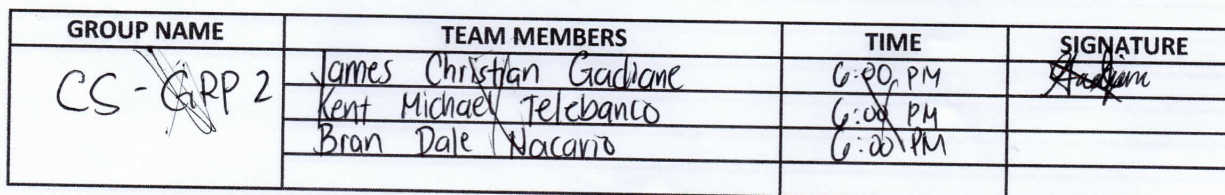 GROUP NAME TEAM MEMBERS TIME SIGNATURE
CS-GRP 2 James Christian Gadiane 6:00 PM
Kent Michael Telebanco 6:00 PM
Bran Dale Nacario 6:00 PM